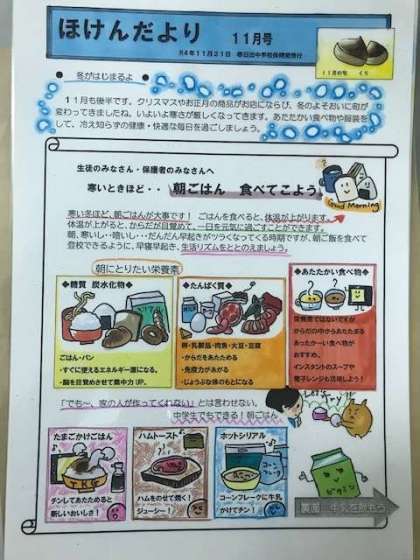 ほけんだより 11月号
R4年11月21日 春日出中学校保健室発行
11月の旬 くり
冬がはじまるよ
11月も後半です。クリスマスやお正月の商品がお店にならび、冬のよそおいに町が
変わってきましたね。いよいよ寒さが厳しくなってきます。あたたかい食べ物や服装を
して、冷え知らずの健康・快適な毎日を過ごしましょう。
生徒のみなさん・保護者のみなさんへ
寒いときほど・・ 朝ごはん 食べてこよう
Good Morning
寒い冬ほど、朝ごはんが大事です! ごはんを食べると、体温が上がります。
体温が上がると、からだが目覚めて、一日を元気に過ごすことができます。
朝、寒いし・・暗いし・・だんだん早起きがツラくなってくる時期ですが、朝ご飯を食べて
登校できるように、早寝早起き、生活リズムをととのえましょう。
朝にとりたい栄養素
◆糖質 炭水化物◆
ごはん・パン
・すぐに使えるエネルギー源になる。
・脳を目覚めさせて集中力UP。
◆たんぱく質◆
卵・乳製品・肉魚・大豆・豆腐
・からだをあたためる
・免疫力があがる
・じょうぶな体のもとになる
◆あたたかい食べ物◆
栄養素ではないですが
からだの中からあたたまる
あったかーい食べ物が
おすすめ。
インスタントのスープや
電子レンジも活用しよう!
「でも~、家の人が作ってくれない」とは言わせない。
中学生でもできる!朝ごはん
たまごかけごはん
T.K.G
チンしてあたためると
新しいおいしさ!
ハムトースト
ハムをのせて焼く!
ジューシー!
ホットシリアル
コーンフレークに牛乳
かけてチン!
裏面 牛乳を飲もう